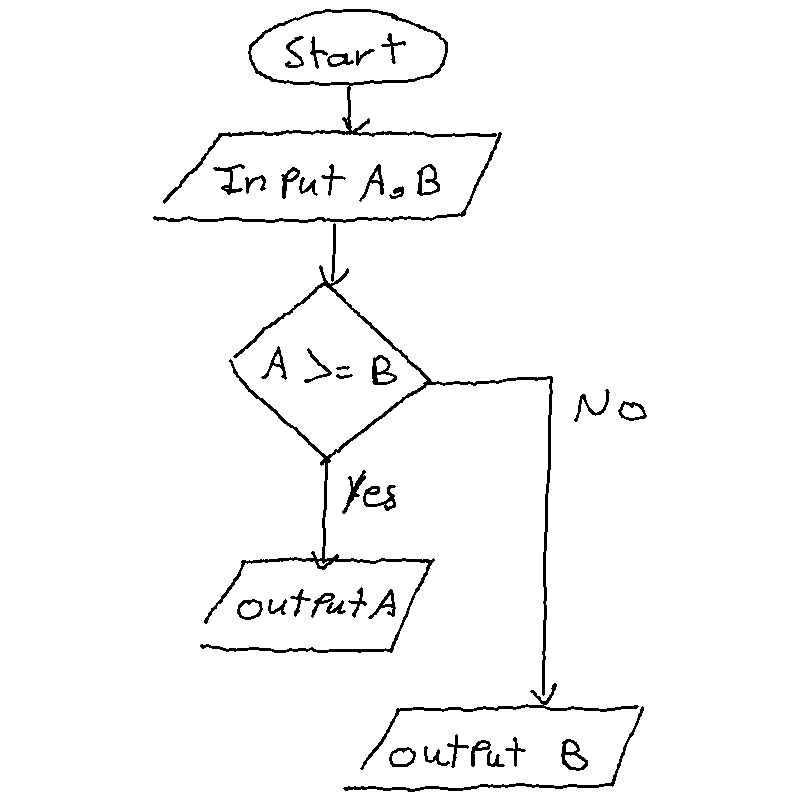 Start
Input A,B
A >= B
No
Yes
output A
output B